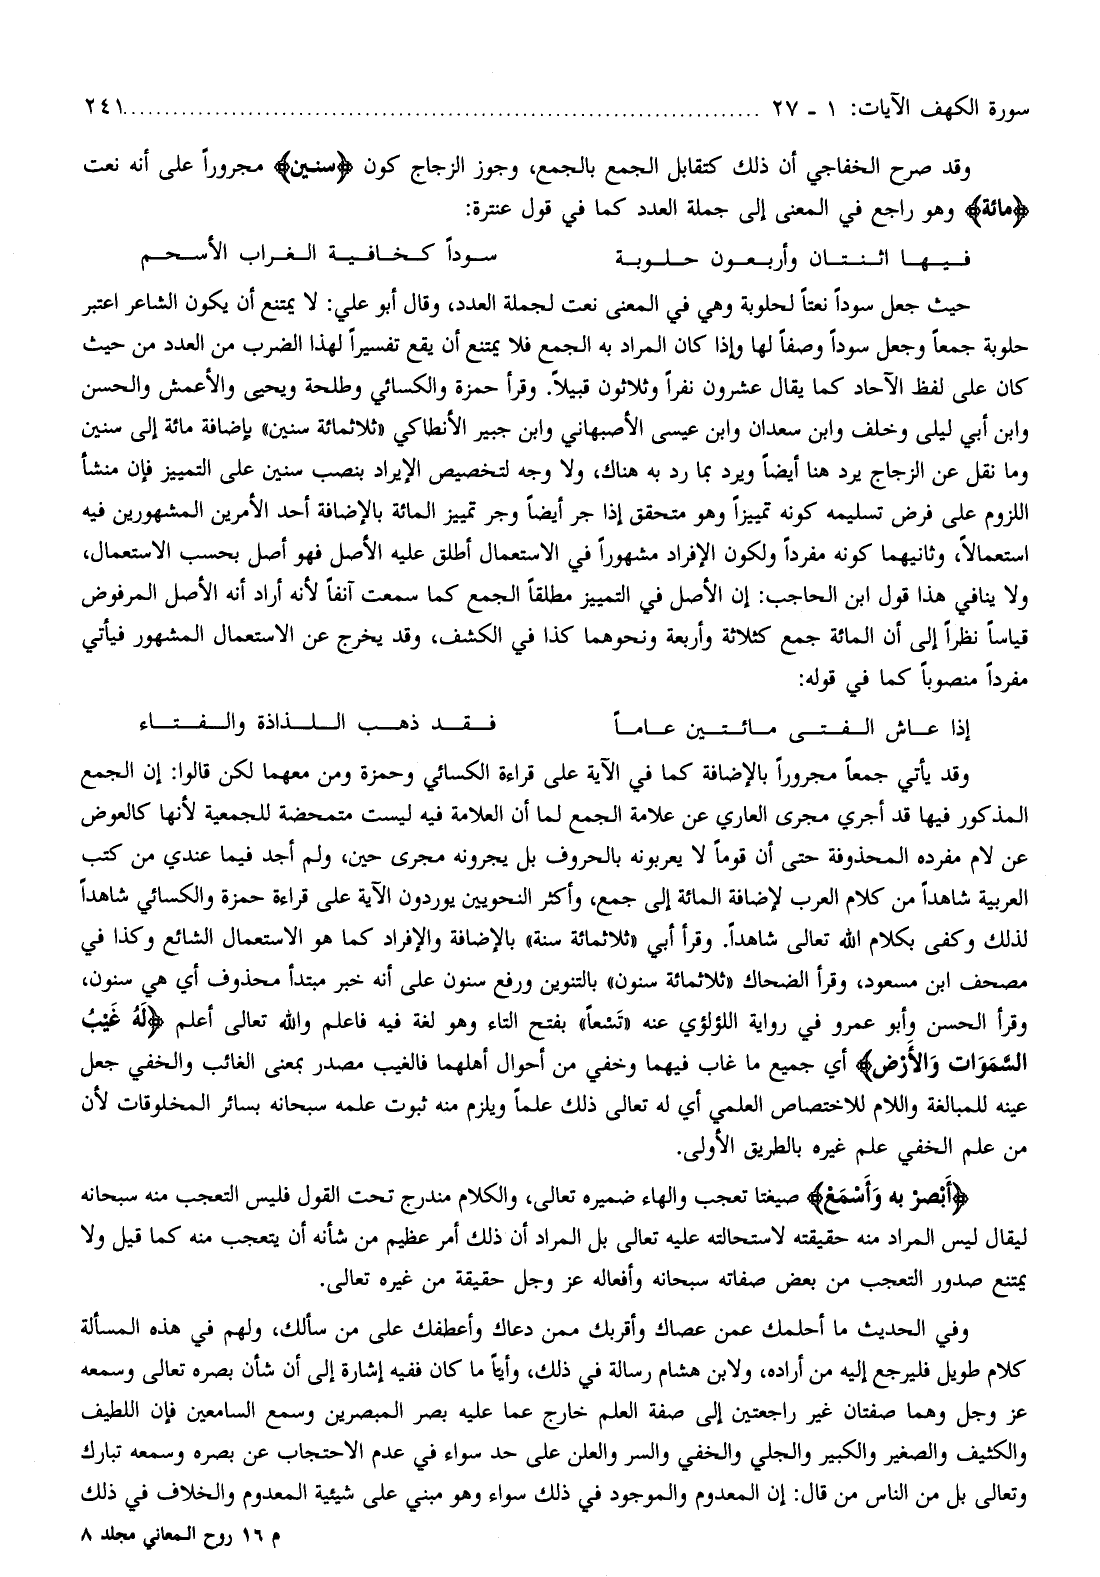 سورة الكهف الآيات: ١ - ٢٧ ........................................................................ ٢٤١
وقد صرح الخفاجي أن ذلك كتقابل الجمع بالجمع، وجوز الزجاج كون ﴿سنين﴾ مجروراً على أنه نعت
﴿مائة﴾ وهو راجع في المعنى إلى جملة العدد كما في قول عنترة:
فيها اثنتان وأربعون حلوبة سوداً كخافية الغراب الأسحم
حيث جعل سوداً نعتاً لحلوبة وهي في المعنى نعت لجملة العدد، وقال أبو علي: لا يمتنع أن يكون الشاعر اعتبر
حلوبة جمعاً وجعل سوداً وصفاً لها وإذا كان المراد به الجمع فلا يمتنع أن يقع تفسيراً لهذا الضرب من العدد من حيث
كان على لفظ الآحاد كما يقال عشرون نفراً وثلاثون قبيلاً. وقرأ حمزة والكسائي وطلحة ويحيى والأعمش والحسن
وابن أبي ليلى وخلف وابن سعدان وابن عيسى الأصبهاني وابن جبير الأنطاكي «ثلاثمائة سنين» بإضافة مائة إلى سنين
وما نقل عن الزجاج يرد هنا أيضاً ويرد بما رد به هناك، ولا وجه لتخصيص الإيراد بنصب سنين على التمييز فإن منشأ
اللزوم على فرض تسليمه كونه تمييزاً وهو متحقق إذا جر أيضاً وجر تمييز المائة بالإضافة أحد الأمرين المشهورين فيه
استعمالاً، وثانيهما كونه مفرداً ولكون الإفراد مشهوراً في الاستعمال أطلق عليه الأصل فهو أصل بحسب الاستعمال،
ولا ينافي هذا قول ابن الحاجب: إن الأصل في التمييز مطلقاً الجمع كما سمعت آنفاً لأنه أراد أنه الأصل المرفوض
قياساً نظراً إلى أن المائة جمع كثلاثة وأربعة ونحوهما كذا في الكشف، وقد يخرج عن الاستعمال المشهور فيأتي
مفرداً منصوباً كما في قوله:
إذا عاش الفتى مائتين عاماً فقد ذهب اللذاذة والفتاء
وقد يأتي جمعاً مجروراً بالإضافة كما في الآية على قراءة الكسائي وحمزة ومن معهما لكن قالوا: إن الجمع
المذكور فيها قد أجري مجرى العاري عن علامة الجمع لما أن العلامة فيه ليست متمحضة للجمعية لأنها كالعوض
عن لام مفرده المحذوفة حتى أن قوماً لا يعربونه بالحروف بل يجرونه مجرى حين، ولم أجد فيما عندي من كتب
العربية شاهداً من كلام العرب لإضافة المائة إلى جمع، وأكثر النحويين يوردون الآية على قراءة حمزة والكسائي شاهداً
لذلك وكفى بكلام الله تعالى شاهداً. وقرأ أبي «ثلاثمائة سنة» بالإضافة والإفراد كما هو الاستعمال الشائع وكذا في
مصحف ابن مسعود، وقرأ الضحاك «ثلاثمائة سنون» بالتنوين ورفع سنون على أنه خبر مبتدأ محذوف أي هي سنون،
وقرأ الحسن وأبو عمرو في رواية اللؤلؤي عنه «تَسْعاً» بفتح التاء وهو لغة فيه فاعلم والله تعالى أعلم ﴿لَهُ غَيْبُ
السَّمَوَات وَالأَرْض﴾ أي جميع ما غاب فيهما وخفي من أحوال أهلهما فالغيب مصدر بمعنى الغائب والخفي جعل
عينه للمبالغة واللام للاختصاص العلمي أي له تعالى ذلك علماً ويلزم منه ثبوت علمه سبحانه بسائر المخلوقات لأن
من علم الخفي علم غيره بالطريق الأولى.
﴿أَبْصرْ به وَأَسْمَعْ﴾ صيغتا تعجب والهاء ضميره تعالى، والكلام مندرج تحت القول فليس التعجب منه سبحانه
ليقال ليس المراد منه حقيقته لاستحالته عليه تعالى بل المراد أن ذلك أمر عظيم من شأنه أن يتعجب منه كما قيل ولا
يمتنع صدور التعجب من بعض صفاته سبحانه وأفعاله عز وجل حقيقة من غيره تعالى.
وفي الحديث ما أحلمك عمن عصاك وأقربك ممن دعاك وأعطفك على من سألك، ولهم في هذه المسألة
كلام طويل فليرجع إليه من أراده، ولابن هشام رسالة في ذلك، وأياً ما كان ففيه إشارة إلى أن شأن بصره تعالى وسمعه
عز وجل وهما صفتان غير راجعتين إلى صفة العلم خارج عما عليه بصر المبصرين وسمع السامعين فإن اللطيف
والكثيف والصغير والكبير والجلي والخفي والسر والعلن على حد سواء في عدم الاحتجاب عن بصره وسمعه تبارك
وتعالى بل من الناس من قال: إن المعدوم والموجود في ذلك سواء وهو مبني على شيئية المعدوم والخلاف في ذلك
م ١٦ روح المعاني مجلد ٨